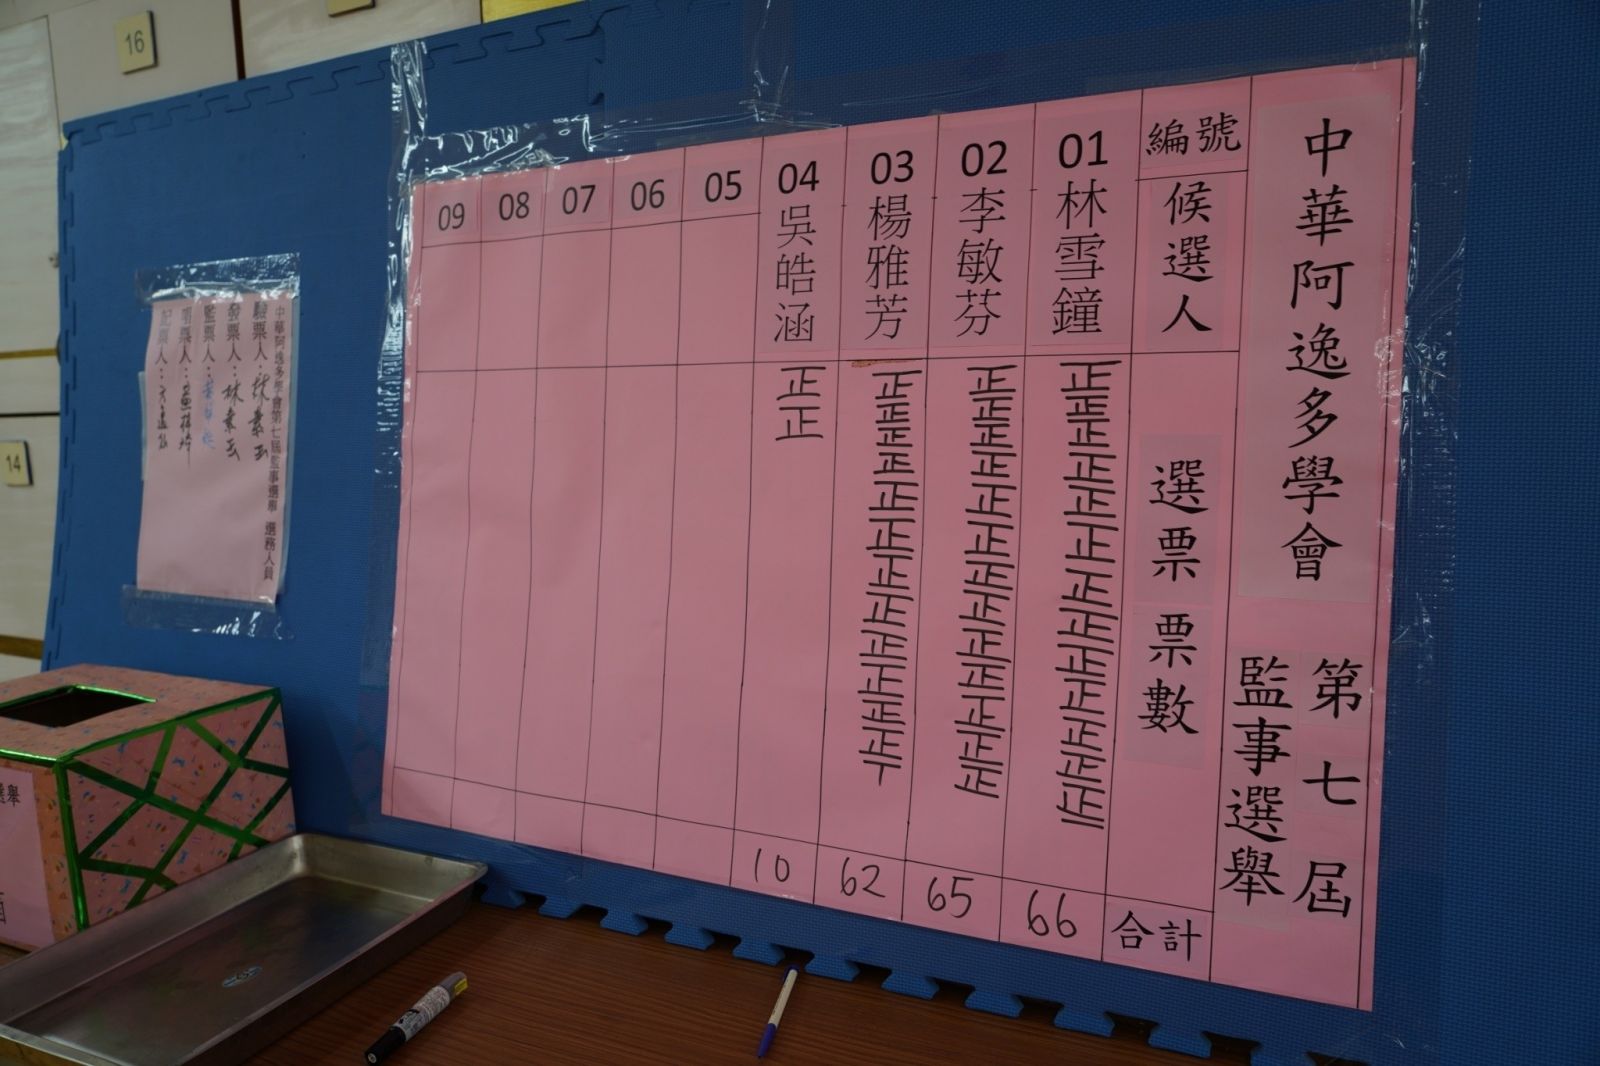 中華阿逸多學會
第七屆
監事選舉
編號
候選人
選票票數
合計
01
林雪鐘
正正正正正正正正正正正正正一
66
02
李敏芬
正正正正正正正正正正正正正
65
03
楊雅芳
正正正正正正正正正正正正丅
62
04
吳皓涵
正正
10
05
06
07
08
09
中華阿逸多學會第七屆監事選舉 選務人員
驗票人：林素玉
發票人：林素玉
監票人：
唱票人：
記票人：
16
14
選舉